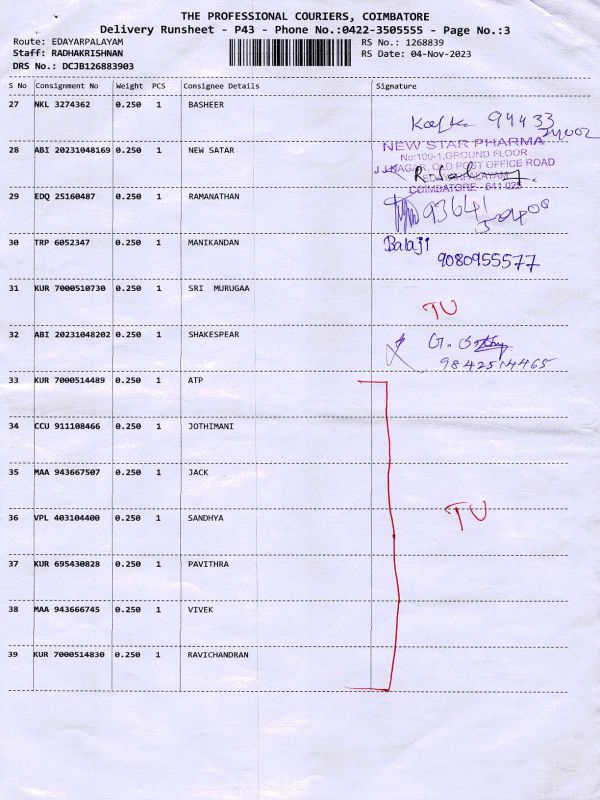 THE PROFESSIONAL COURIERS, COIMBATORE
Delivery Runsheet - P43 - Phone No.:0422-3505555 - Page No.:3
Route: EDAYARPALAYAM RS No.: 1268839
Staff: RADHAKRISHNAN RS Date: 04-Nov-2023
DRS No.: DCJB126883903
S No Consignment No Weight PCS Consignee Details Signature
27 NKL 3274362 0.250 1 BASHEER
94433
28 ABI 20231048169 0.250 1 NEW SATAR
NEW STAR PHARMA
No:100-1,GROUND FLOOR
J.J.NAGAR, OLD POST OFFICE ROAD
EDAYARPALAYAM
COIMBATORE - 641 025
29 EDQ 25160487 0.250 1 RAMANATHAN
93641
30 TRP 6052347 0.250 1 MANIKANDAN
Balaji
9080955577
31 KUR 7000510730 0.250 1 SRI MURUGAA
TU
32 ABI 20231048202 0.250 1 SHAKESPEAR
9842514465
33 KUR 7000514489 0.250 1 ATP
34 CCU 911108466 0.250 1 JOTHIMANI
35 MAA 943667507 0.250 1 JACK
36 VPL 403104400 0.250 1 SANDHYA
TU
37 KUR 695430828 0.250 1 PAVITHRA
38 MAA 943666745 0.250 1 VIVEK
39 KUR 7000514830 0.250 1 RAVICHANDRAN